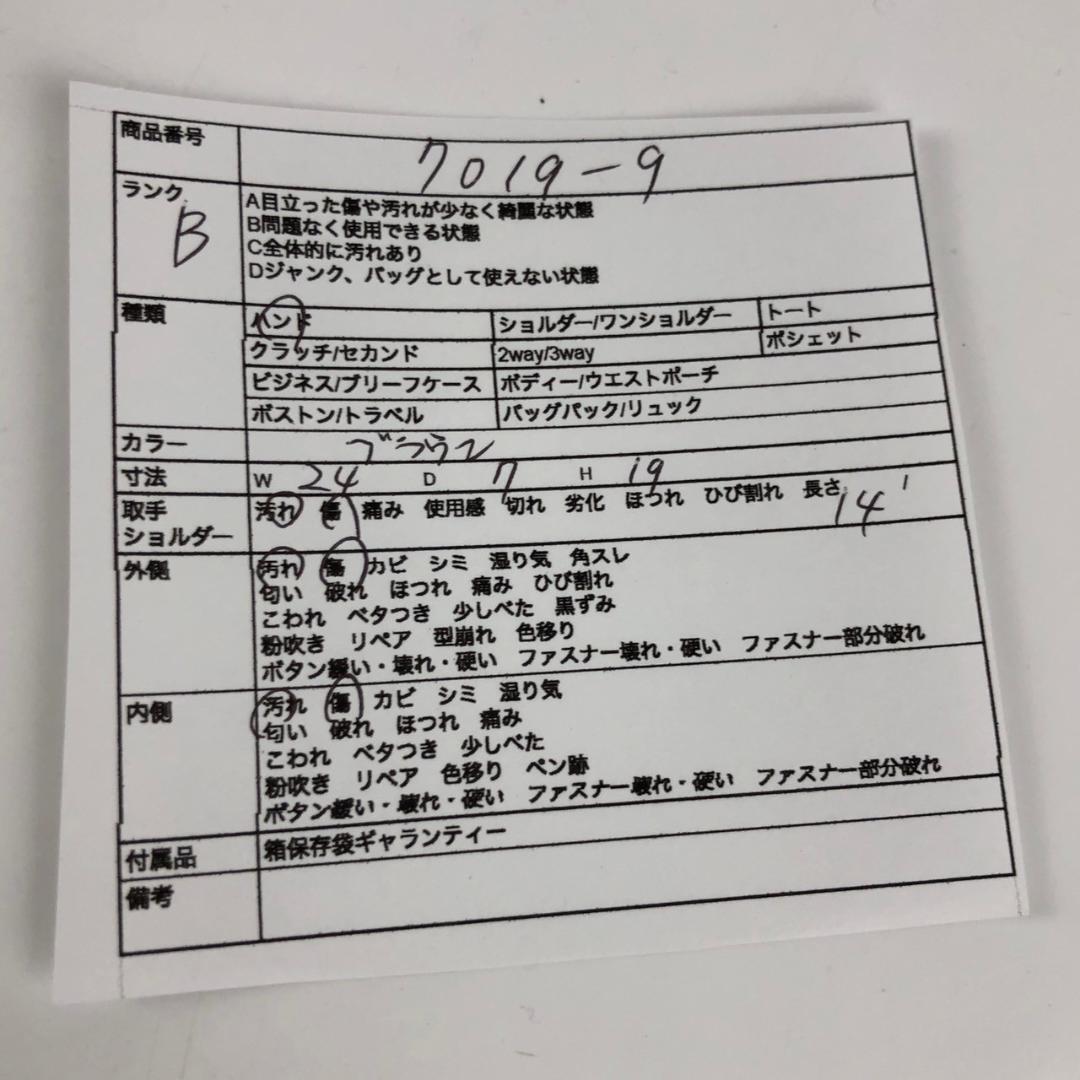 商品番号 7019-9
ランク B
A目立った傷や汚れが少なく綺麗な状態
B問題なく使用できる状態
C全体的に汚れあり
Dジャンク、バッグとして使えない状態
種類 ハンド ショルダー/ワンショルダー トート
クラッチ/セカンド 2way/3way ポシェット
ビジネス/ブリーフケース ボディー/ウエストポーチ
ボストン/トラベル バッグパック/リュック
カラー ブラウン
寸法 W 24 D 7 H 19
取手 汚れ 傷 痛み 使用感 切れ 劣化 ほつれ ひび割れ 長さ 14
ショルダー
外側 汚れ 傷 カビ シミ 湿り気 角スレ
匂い 破れ ほつれ 痛み ひび割れ
こわれ ベタつき 少しべた 黒ずみ
粉吹き リペア 型崩れ 色移り
ボタン緩い・壊れ・硬い ファスナー壊れ・硬い ファスナー部分破れ
内側 汚れ 傷 カビ シミ 湿り気
匂い 破れ ほつれ 痛み
こわれ ベタつき 少しべた
粉吹き リペア 色移り ペン跡
ボタン緩い・壊れ・硬い ファスナー壊れ・硬い ファスナー部分破れ
付属品 箱保存袋ギャランティー
備考